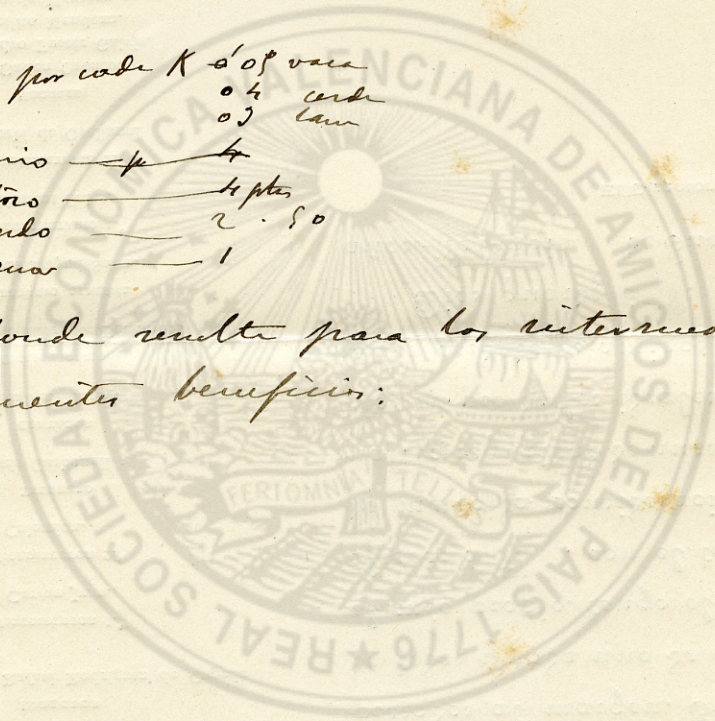 por cada K á 05 vaca
04 cerdo
03 lanar
4
4 ptas
2.50
1
resulta para los
beneficios:
REAL SOCIEDAD ECONOMICA VALENCIANA DE AMIGOS DEL PAIS 1776
FERT OMNIA TELLUS